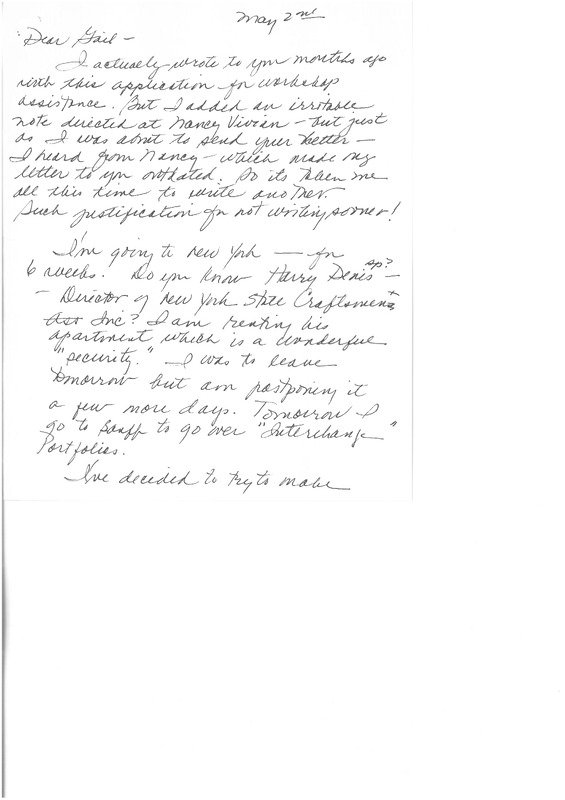 May 2nd
Dear Gail -
I actually wrote to you months ago
with this application for workshop
assistance. But I added an irritable
note directed at Nancy Vivian - but just
as I was about to send your letter -
I heard from Nancy - which made my
letter to you outdated. So its taken me
all this time to write another.
Such justification for not writing sooner!
I'm going to New York — for
6 weeks. Do you know Harry Denis sp? -
- Director of New York State Craftsmen
Inc? I am renting his
apartment which is a wonderful
"security." I was to leave
tomorrow but am postponing it
a few more days. Tomorrow I
go to Banff to go over "Interchange"
Portfolios.
I've decided to try to make